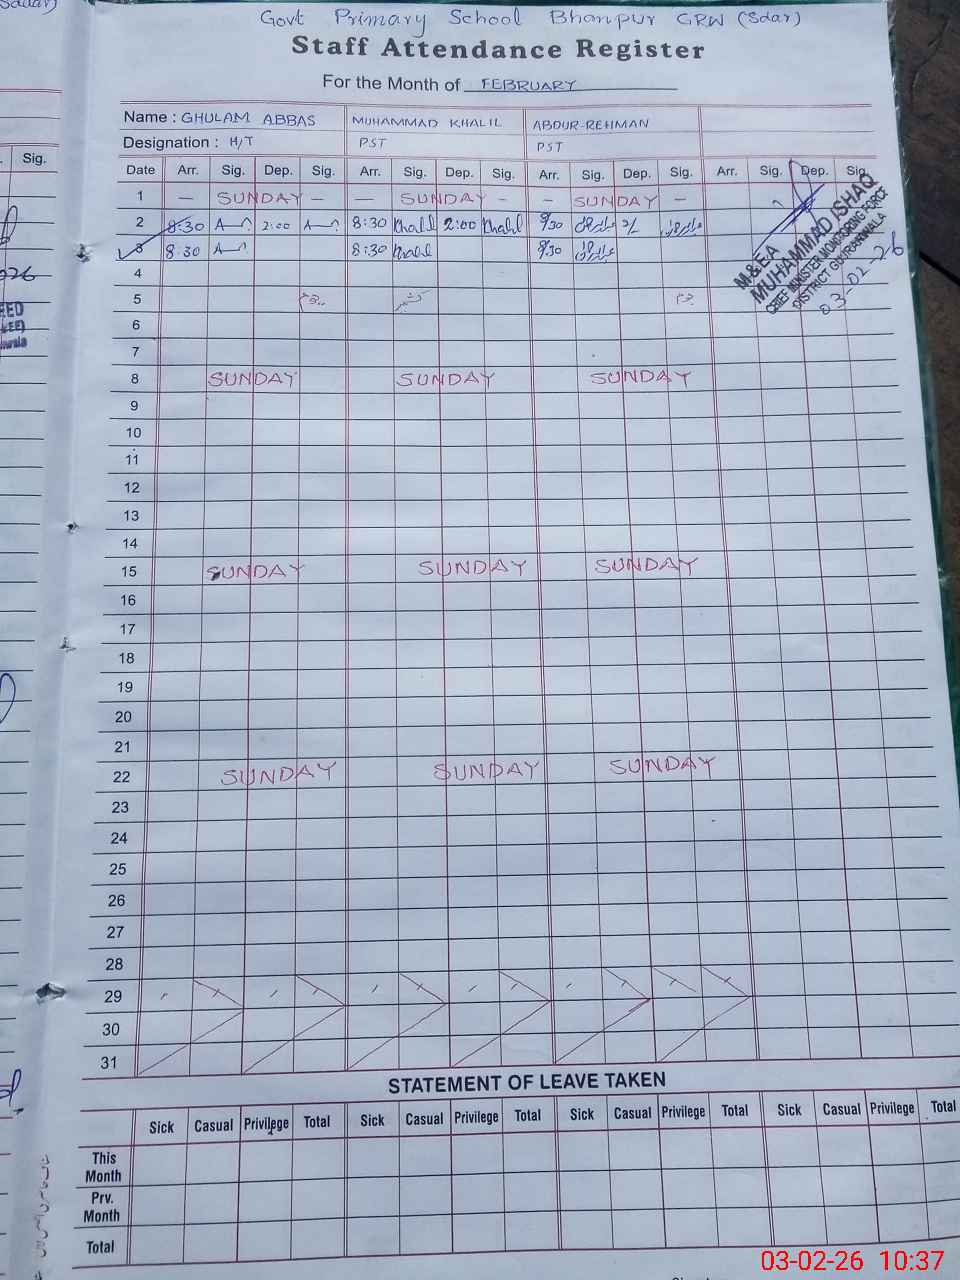 Govt Primary School Bhanpur GRW (Sdar)
Staff Attendance Register
For the Month of FEBRUARY
Name : GHULAM ABBAS MUHAMMAD KHALIL ABDUR-REHMAN
Designation : H/T PST PST
Date Arr. Sig. Dep. Sig. Arr. Sig. Dep. Sig. Arr. Sig. Dep. Sig. Arr. Sig. Dep. Sig.
1 – SUNDAY – – SUNDAY – – SUNDAY –
2 8:30 2:00 8:30 Khalil 2:00 Khalil 9/30
3 8:30 8:30 Khalil 9/30
4
5
6
7
8 SUNDAY SUNDAY SUNDAY
9
10
11
12
13
14
15 SUNDAY SUNDAY SUNDAY
16
17
18
19
20
21
22 SUNDAY SUNDAY SUNDAY
23
24
25
26
27
28
29
30
31
M&E.A
MUHAMMAD ISHAQ
CHIEF MINISTER MONITORING FORCE
DISTRICT GUJRANWALA
03-02-26
STATEMENT OF LEAVE TAKEN
Sick Casual Privilege Total Sick Casual Privilege Total Sick Casual Privilege Total Sick Casual Privilege Total
This Month
Prv. Month
Total
Sig.
03-02-26 10:37